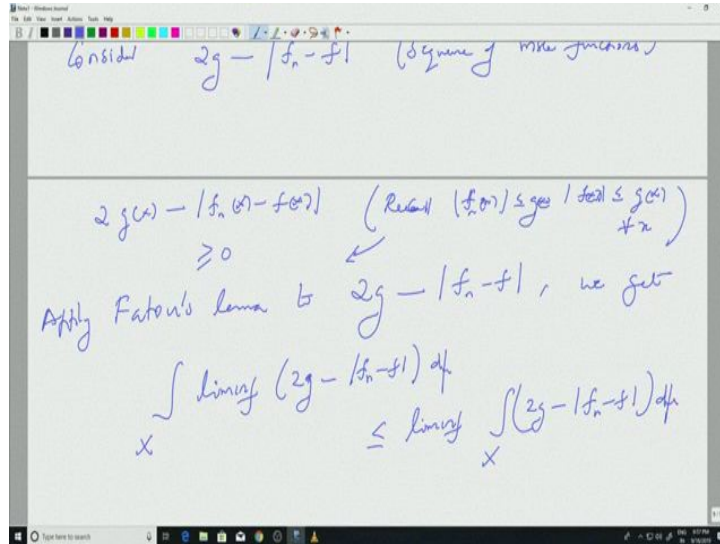 Note1 - Windows Journal
File Edit View Insert Actions Tools Help
Consider 2g - |f_n - f| (Sequence of mble functions)
2g(x) - |f_n(x) - f(x)| (Recall |f_n(x)| ≤ g(x) |f(x)| ≤ g(x)
≥ 0 ∀ x)
Apply Fatou's lema to 2g - |f_n - f|, we get
∫_X liminf (2g - |f_n - f|) dμ
≤ liminf ∫_X (2g - |f_n - f|) dμ
Type here to search
ENG 9:57 PM
IN 9/19/2019